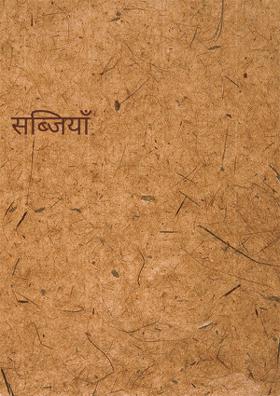 सब्जियाँ